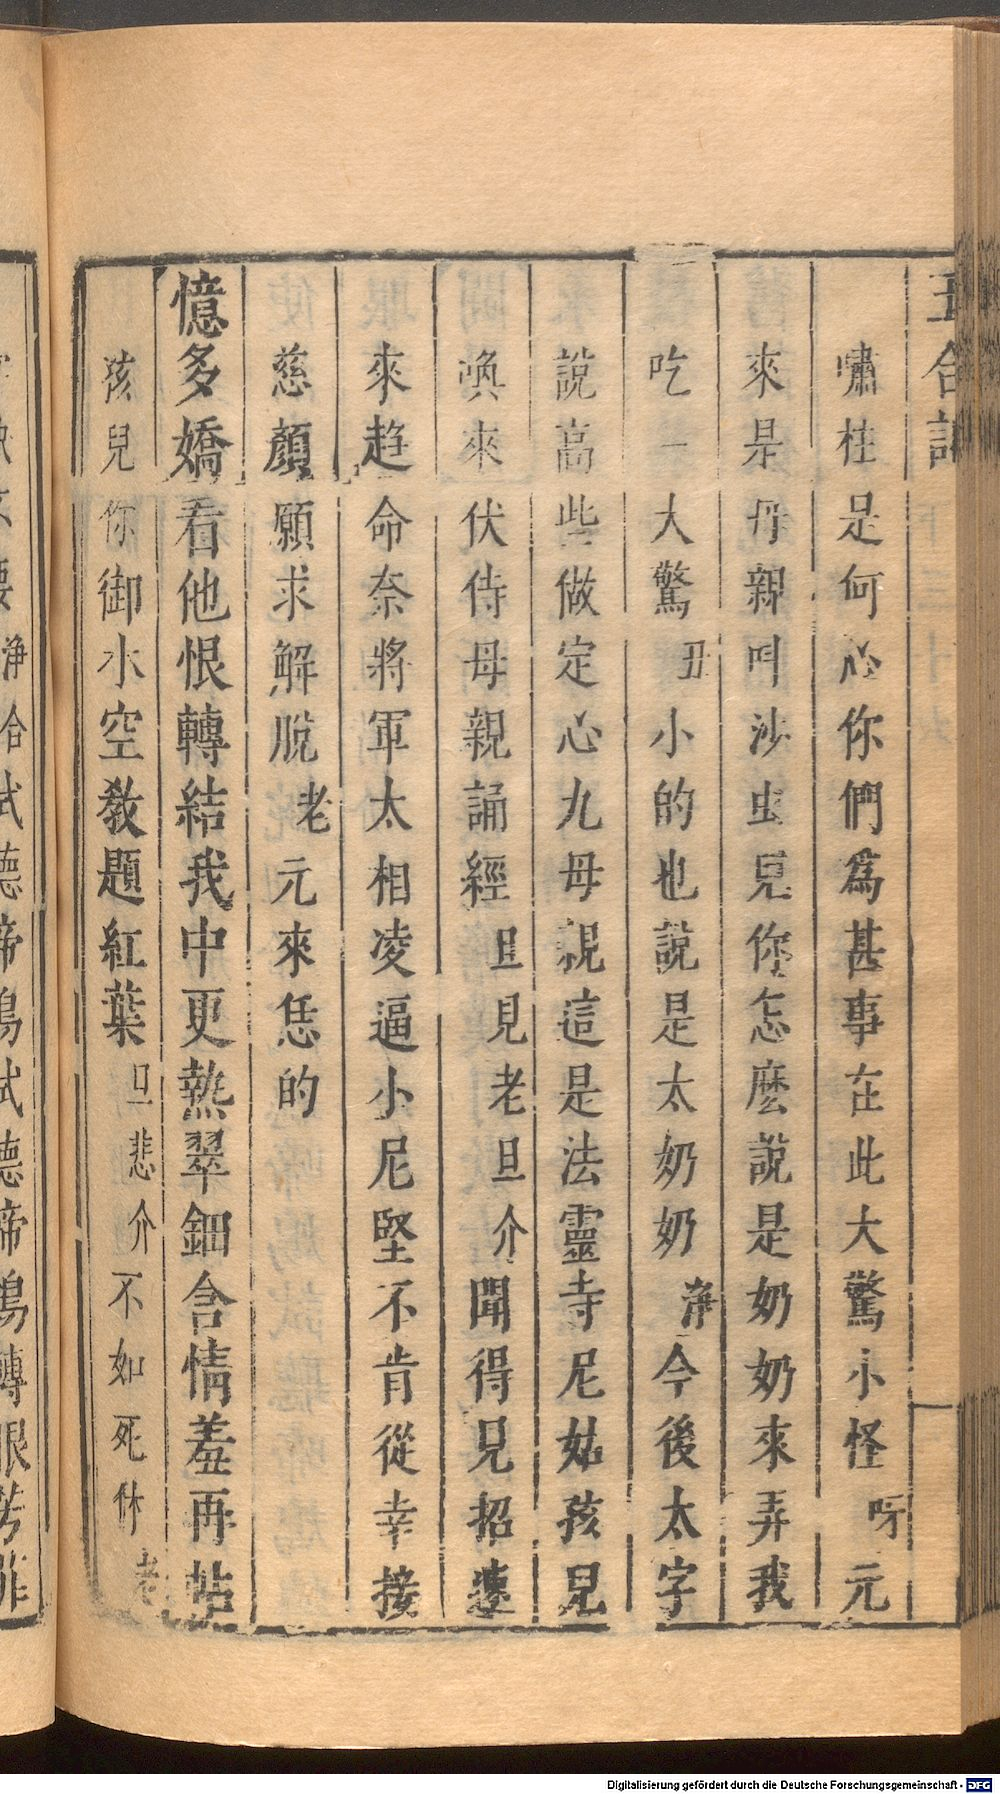 嘯桂是何心你們爲甚事在此大驚小怪呀元
來是母親叫沙虫見你怎麽說是奶奶來弄我
吃一大驚丑小的也說是太奶奶淨今後太字
說高些做定心九母親這是法靈寺尼姑孩兒
喚來伏侍母親誦經旦見老旦介聞得兄招速
來趋命奈將軍太相凌逼小尼堅不肯從幸接
慈顏願求解脫老元來恁的
憶多嬌看他恨轉結我中更熱翠鈿含情羞再帖
孩兒你御水空教題紅葉旦悲介不如死休老
Digitalisierung gefördert durch die Deutsche Forschungsgemeinschaft - DFG